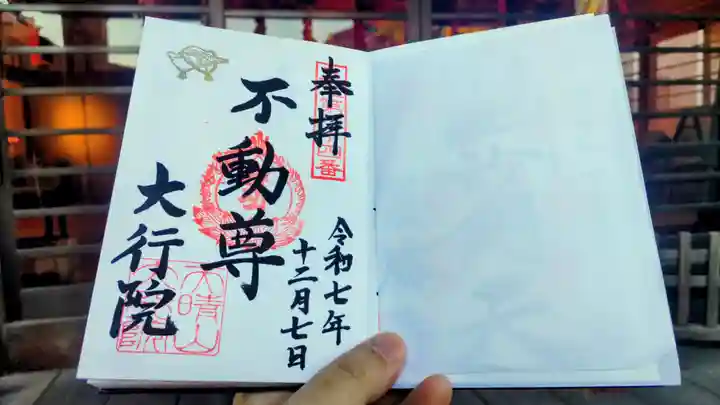 奉拝
不動尊
大行院
令和七年
十二月七日
番
天晴山